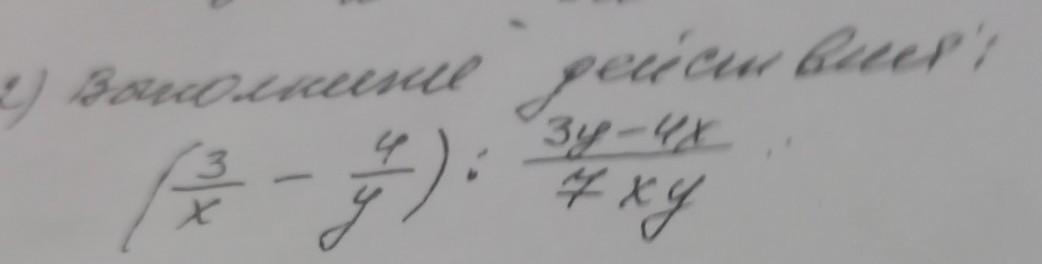 2) Выполните действия:
(3/x - 4/y) : (3y-4x)/(7xy)